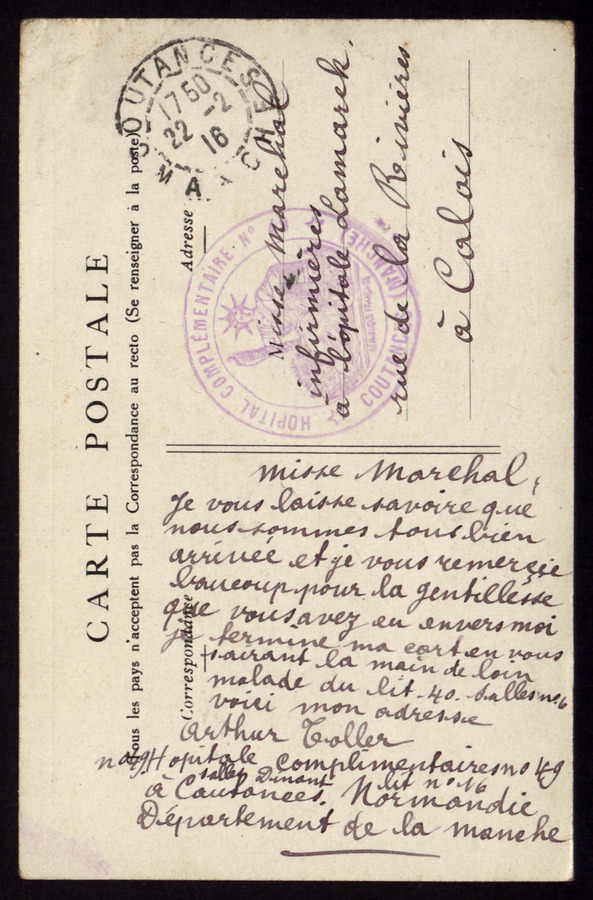 CARTE POSTALE
Tous les pays n'acceptent pas la Correspondance au recto (Se renseigner à la poste)
Correspondance
Adresse
COUTANCES
1750
22 -2
16
MANCHE
HOPITAL COMPLÉMENTAIRE N°
COUTANCES (MANCHE)
Misse Marchal
infirmières
à l'ôpitale Lamarck.
rue de la Rivières
à Calais
misse Marchal,
Je vous laisse savoire que
nous sommes tous bien
arrivée et je vous remerçie
baucoup pour la gentillesse
que vous avez eu envers moi
je termine ma cart en vous
sairant la main de loin
malade du lit 40. Salles no 6
voici mon adresse
Arthur Toller
Hopitale Complimentaires no 49
salles Dinant lit no 16
à Cautances. Normandie
Département de la manche